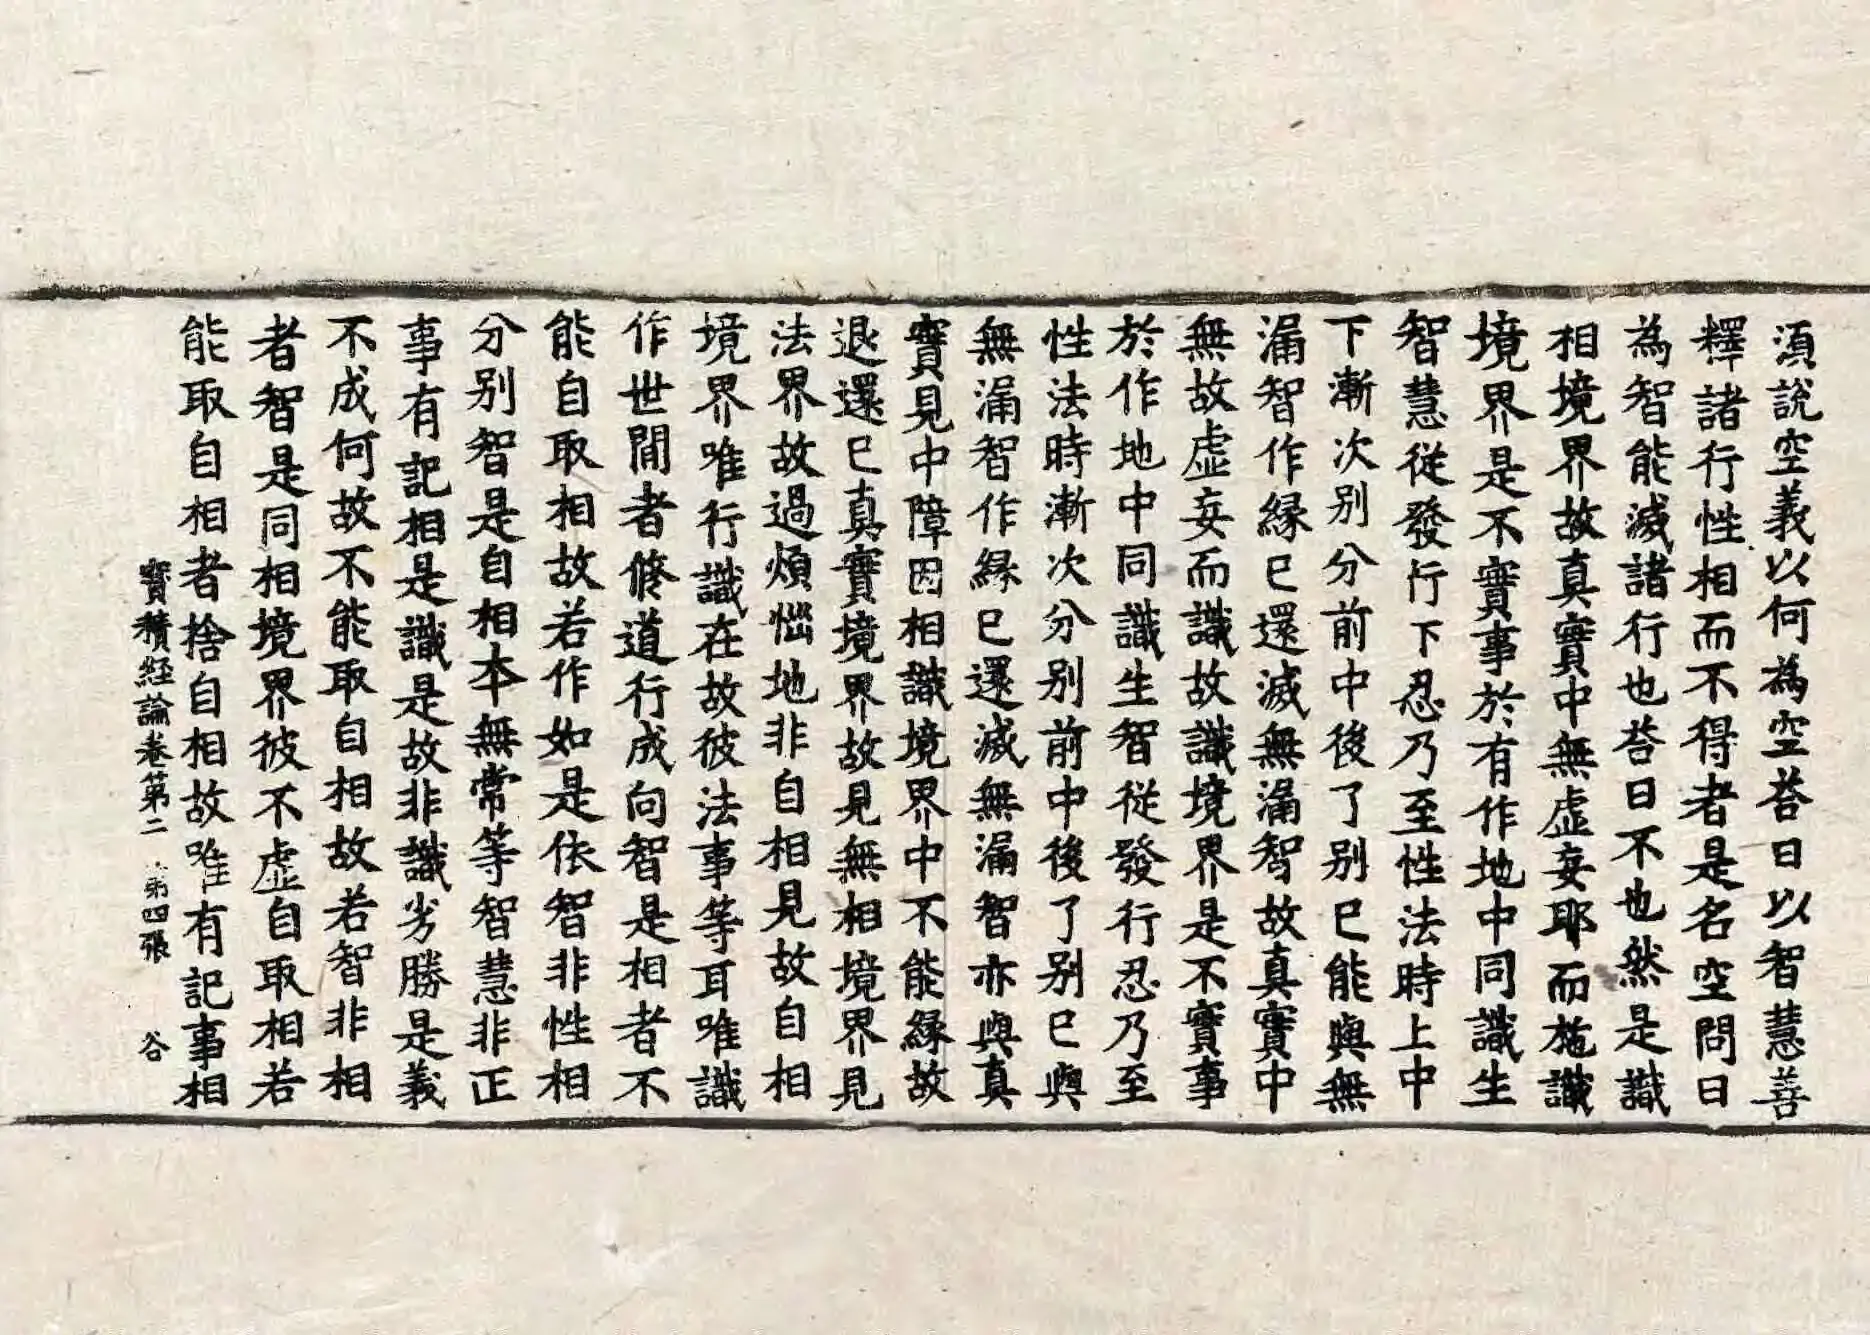 須説空義以何為空荅曰以智慧善
釋諸行性相而不得者是名空問曰
為智能滅諸行也荅曰不也然是識
相境界故真實中無虛妄耶而施識
境界是不實事於有作地中同識生
智慧從發行下忍乃至性法時上中
下漸次別分前中後了別已能與無
漏智作縁已還滅無漏智故真實中
無故虛妄而識故識境界是不實事
於作地中同識生智從發行忍乃至
性法時漸次分別前中後了別已與
無漏智作縁已還滅無漏智亦與真
實見中障因相識境界中不能縁故
退還已真實境界故見無相境界見
法界故過煩惱地非自相見故自相
境界唯行識在故彼法事等耳唯識
作世間者修道行成向智是相者不
能自取相故若作如是依智非性相
分別智是自相本無常等智慧非正
事有記相是識是故非識劣勝是義
不成何故不能取自相故若智非相
者智是同相境界彼不虛自取相若
能取自相者捨自相故唯有記事相
寶積經論卷第二 第四張 谷